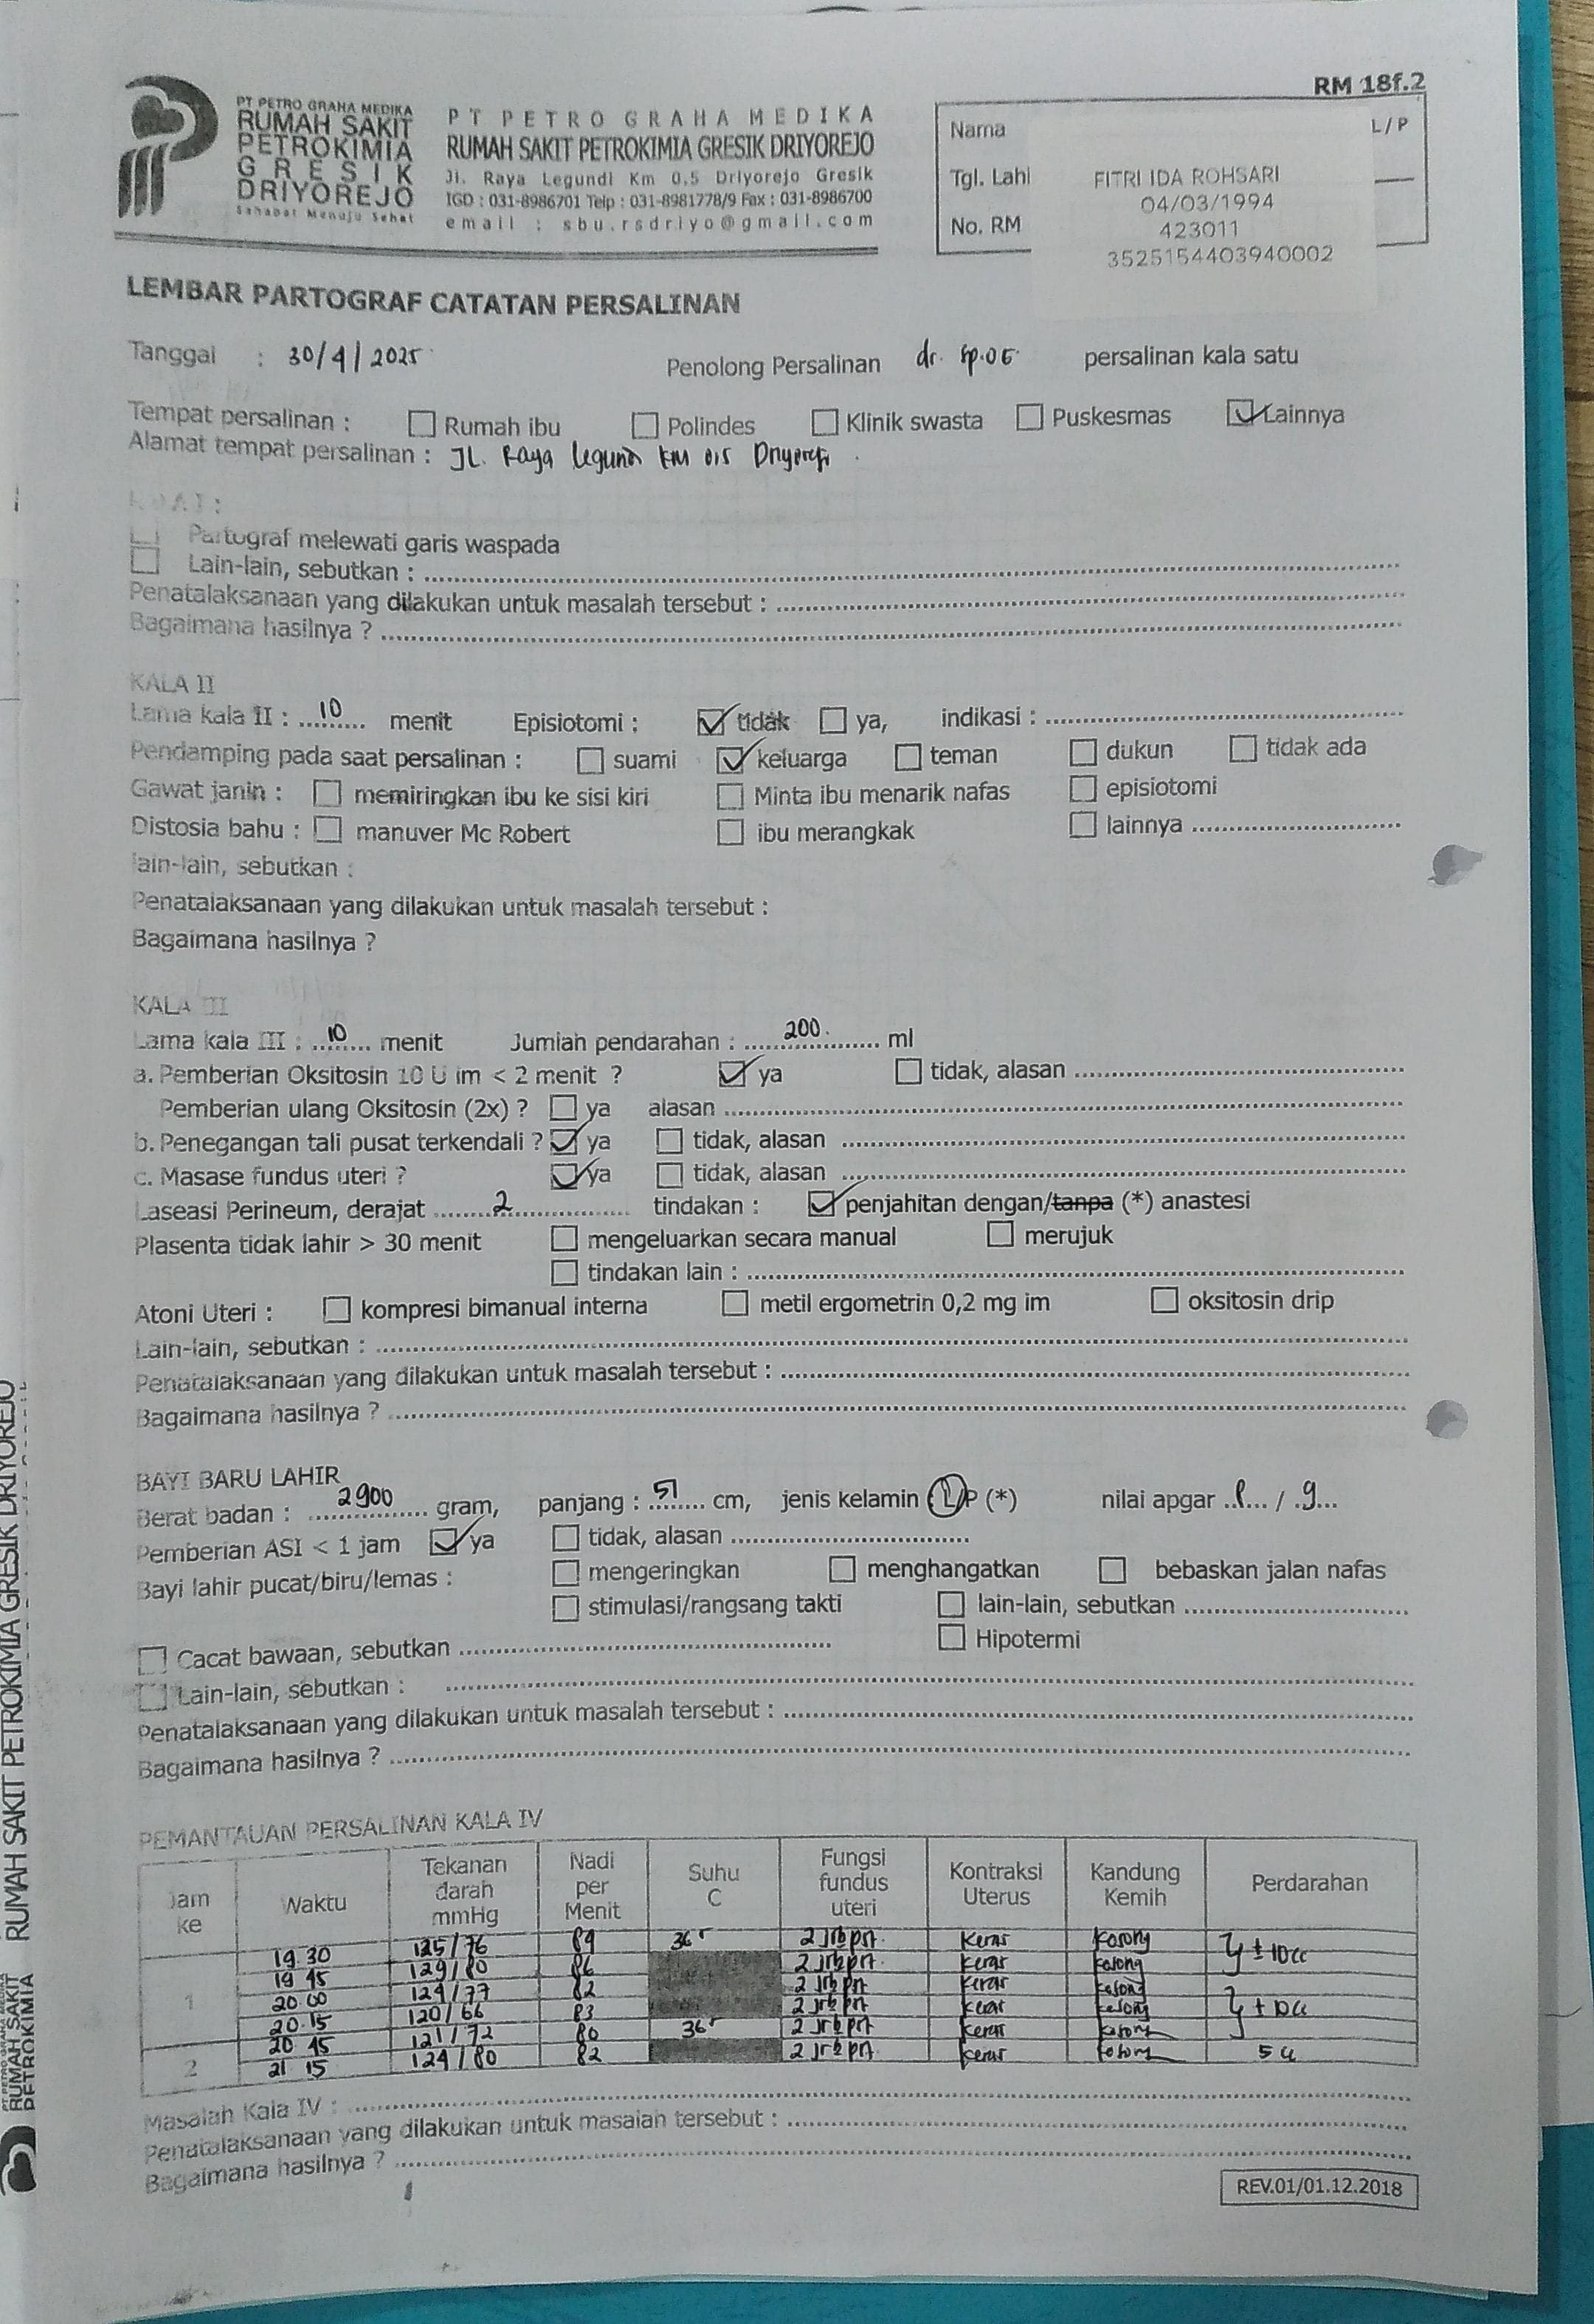 RM 18f.2
PT PETRO GRAHA MEDIKA
RUMAH SAKIT
PETROKIMIA
GRESIK
DRIYOREJO
Sahabat Menuju Sehat
PT PETRO GRAHA MEDIKA
RUMAH SAKIT PETROKIMIA GRESIK DRIYOREJO
Jl. Raya Legundi Km 0,5 Driyorejo Gresik
IGD : 031-8986701 Telp : 031-8981778/9 Fax : 031-8986700
email : sbu.rsdriyo@gmail.com
Nama L/P
Tgl. Lahi FITRI IDA ROHSARI
04/03/1994
No. RM 423011
3525154403940002
LEMBAR PARTOGRAF CATATAN PERSALINAN
Tanggal : 30/4/2025 Penolong Persalinan dr. Sp.OG persalinan kala satu
Tempat persalinan : Rumah ibu Polindes Klinik swasta Puskesmas Lainnya
Alamat tempat persalinan : JL. Raya Legundi KM 0,5 Driyorejo
Partograf melewati garis waspada
Lain-lain, sebutkan :
Penatalaksanaan yang dilakukan untuk masalah tersebut :
Bagaimana hasilnya ?
KALA II
Lama kala II : 10 menit Episiotomi : tidak ya, indikasi :
Pendamping pada saat persalinan : suami keluarga teman dukun tidak ada
Gawat janin : memiringkan ibu ke sisi kiri Minta ibu menarik nafas episiotomi
Distosia bahu : manuver Mc Robert ibu merangkak lainnya
lain-lain, sebutkan :
Penatalaksanaan yang dilakukan untuk masalah tersebut :
Bagaimana hasilnya ?
KALA III
Lama kala III : 10 menit Jumlah pendarahan : 200 ml
a. Pemberian Oksitosin 10 U im < 2 menit ? ya tidak, alasan
Pemberian ulang Oksitosin (2x) ? ya alasan
b. Penegangan tali pusat terkendali ? ya tidak, alasan
c. Masase fundus uteri ? ya tidak, alasan
Laseasi Perineum, derajat 2 tindakan : penjahitan dengan/tanpa (*) anastesi
Plasenta tidak lahir > 30 menit mengeluarkan secara manual merujuk
tindakan lain :
Atoni Uteri : kompresi bimanual interna metil ergometrin 0,2 mg im oksitosin drip
Lain-lain, sebutkan :
Penatalaksanaan yang dilakukan untuk masalah tersebut :
Bagaimana hasilnya ?
BAYI BARU LAHIR
Berat badan : 2900 gram, panjang : 51 cm, jenis kelamin (L/P (*) nilai apgar / 9
Pemberian ASI < 1 jam ya tidak, alasan
Bayi lahir pucat/biru/lemas : mengeringkan menghangatkan bebaskan jalan nafas
stimulasi/rangsang takti lain-lain, sebutkan
Cacat bawaan, sebutkan Hipotermi
Lain-lain, sebutkan :
Penatalaksanaan yang dilakukan untuk masalah tersebut :
Bagaimana hasilnya ?
PEMANTAUAN PERSALINAN KALA IV
Jam ke Waktu Tekanan darah mmHg Nadi per Menit Suhu C Fungsi fundus uteri Kontraksi Uterus Kandung Kemih Perdarahan
1 19.30 125/76 89 36 2 jrb pst Keras Kosong ± 10cc
19 45 129/80 86 2 jrb pst keras kosong
20 00 124/77 82 2 jrb pst keras kosong
20 15 120/66 83 2 jrb pst keras kosong + 10cc
20 45 121/72 80 36 2 jrb pst keras kosong
2 21 15 124/80 82 2 jrb pst keras kosong 5 cc
Masalah Kala IV :
Penatalaksanaan yang dilakukan untuk masalah tersebut :
Bagaimana hasilnya ?
REV.01/01.12.2018
RUMAH SAKIT PETROKIMIA GRESIK DRIYOREJO
RUMAH SAKIT
PETROKIMIA